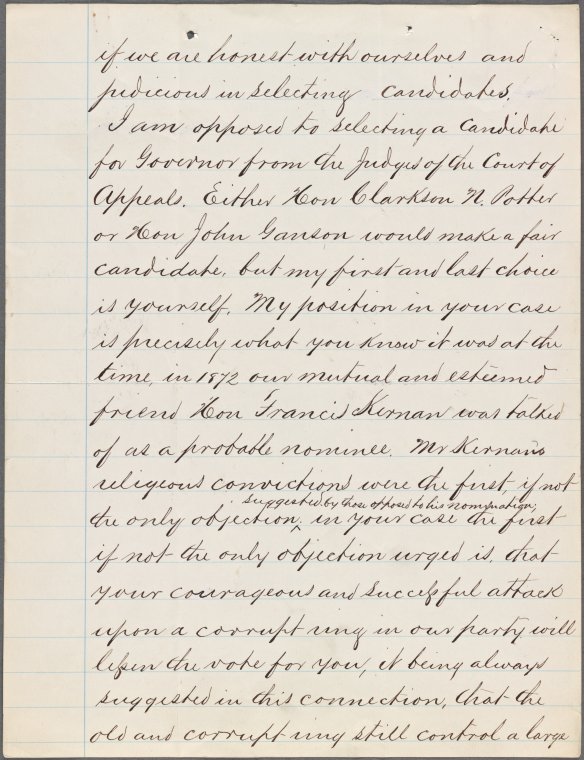 if we are honest with ourselves and
judicious in selecting candidates.
I am opposed to selecting a candidate
for Governor from the Judges of the Court of
Appeals. Either Hon Clarkson N. Potter
or Hon John Ganson would make a fair
candidate, but my first and last choice
is yourself. My position in your case
is precisely what you know it was at the
time, in 1872 our mutual and esteemed
friend Hon Francis Kernan was talked
of as a probable nominee. Mr Kernan's
religeous convictions were the first, if not
suggested by those opposed to his nomination;
the only objection ^ in your case the first
if not the only objection urged is, that
your courageous and successful attack
upon a corrupt ring in our party will
lessen the vote for you, it being always
suggested in this connection, that the
old and corrupt ring still control a large